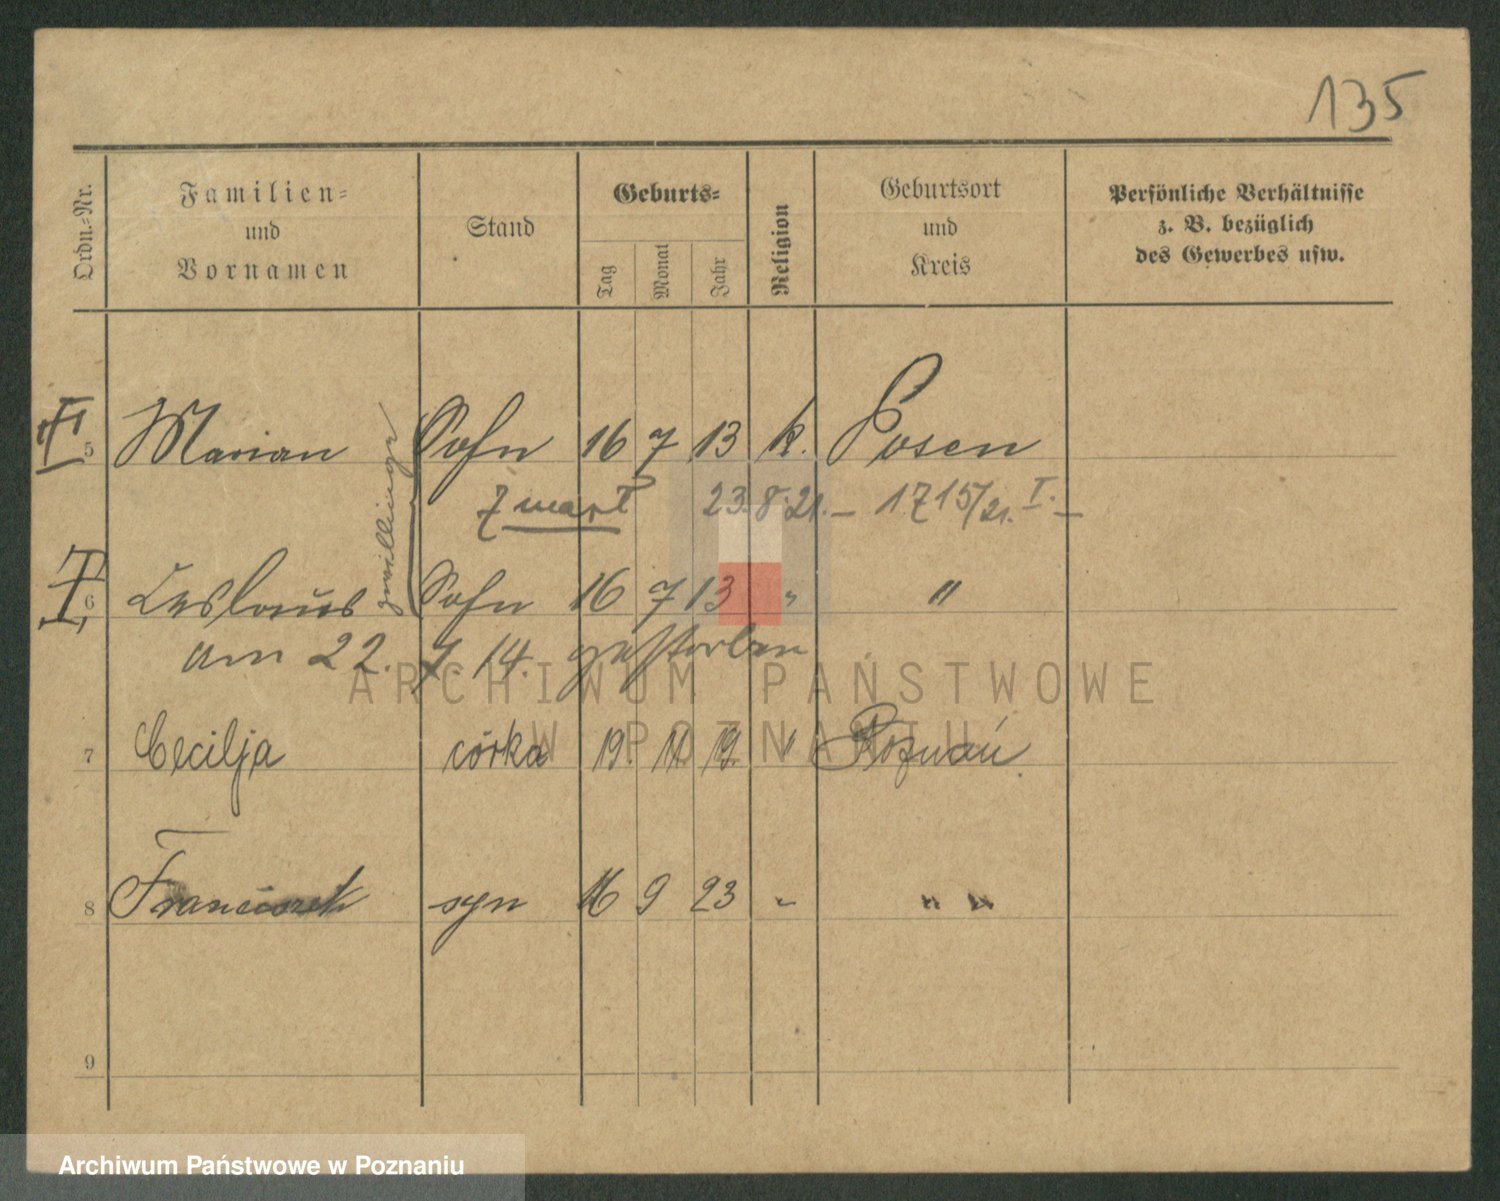 135
Ordn.-Nr.
Familien-
und
Vornamen
Stand
Geburts-
Tag
Monat
Jahr
Religion
Geburtsort
und
Kreis
Persönliche Verhältnisse
z. B. bezüglich
des Gewerbes usw.
5 Marian Sohn 16 7 13 k. Posen
zwillinge
zmarł 23.8.21. – 1715/21. I. –
6 Leslaus Sohn 16 7 13 " "
am 22. 7. 14. gestorben
7 Cecilja córka 19 11 19 " Poznań
8 Franciszek syn 16 9 23 " " "
9
ARCHIWUM PAŃSTWOWE
W POZNANIU
Archiwum Państwowe w Poznaniu